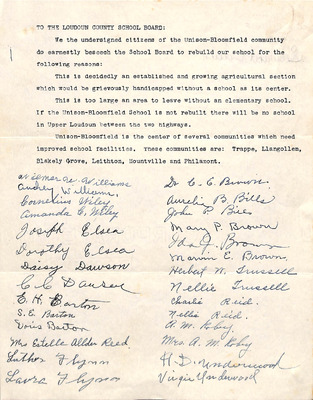 TO THE LOUDOUN COUNTY SCHOOL BOARD:
We the undersigned citizens of the Unison-Bloomfield community
do earnestly beseech the School Board to rebuild our school for the
following reasons:
This is decidedly an established and growing agricultural section
which would be grievously handicapped without a school as its center.
This is too large an area to leave without an elementary school.
If the Unison-Bloomfield School is not rebuilt there will be no school
in Upper Loudoun between the two highways.
Unison-Bloomfield is the center of several communities which need
improved school facilities. These communities are: Trappe, Llangollen,
Blakely Grove, Leithton, Mountville and Philamont.
Williams
Audrey Williams
Cornelius Wiley
Amanda C. Wiley
Joseph Elsea
Dorothy Elsea
Daisy Dawson
C. C. Dawson
E. H. Barton
S. E. Barton
Doris Barton
Mrs Estelle Allder Reed
Luther Flynn
Laura Flynn
Dr C. C. Brown.
Aurelia B. Bills
John P. Bills
Mary P. Brown
Ida J. Brown
Marvin E. Brown
Herbert N. Trussell
Nellie Trussell
Charlie Reid.
Nellie Reid.
A. M. Eby.
Mrs A. M. Eby
H. D. Underwood
Virgie Underwood